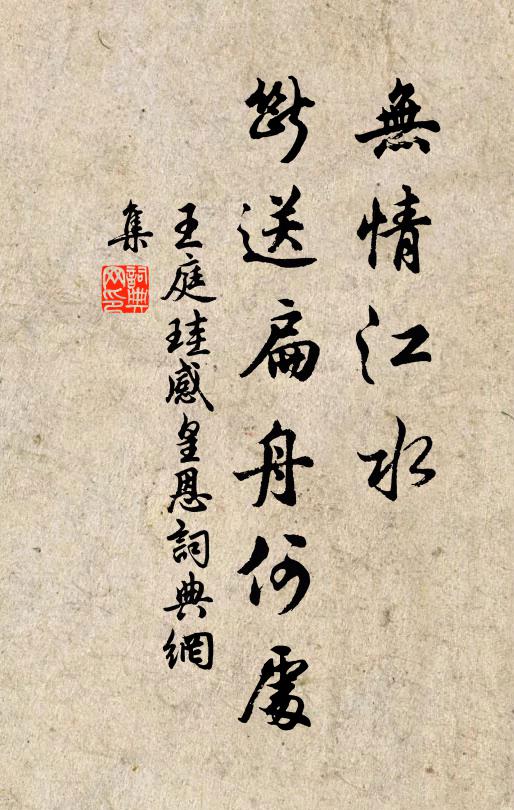 無情江水
斷送扁舟何處
王庭珪感皇恩詞典網
集
詞典
网印